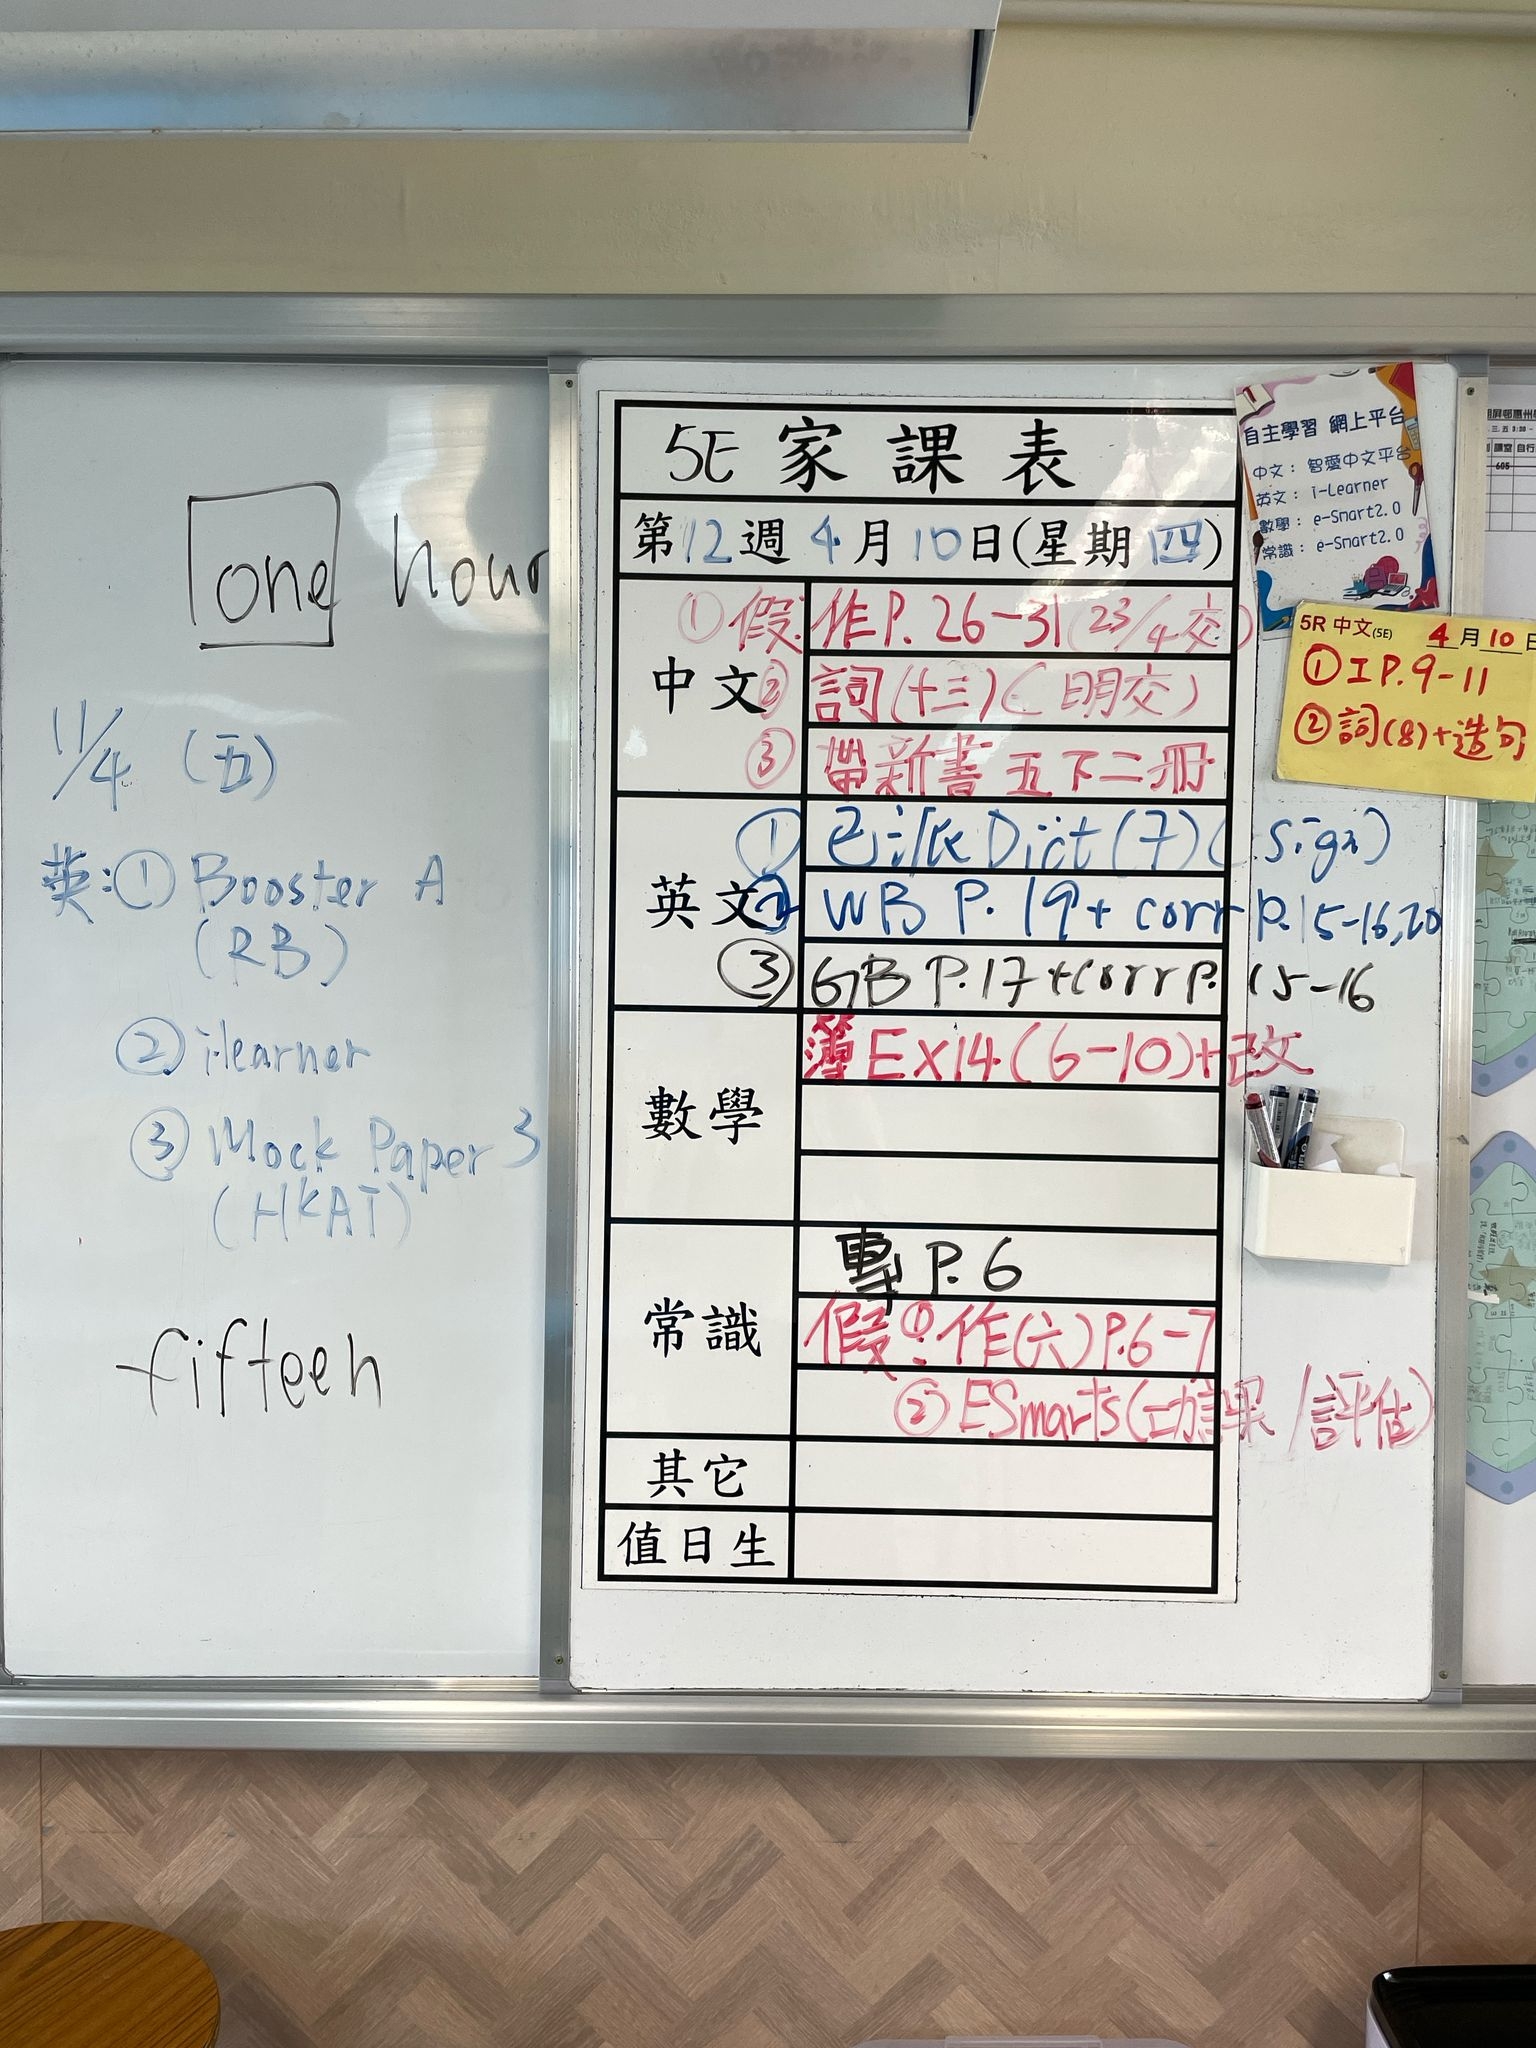 one hour
11/4 (五)
英:① Booster A
(RB)
② i-learner
③ Mock Paper 3
(HKAT)
fifteen
5E 家課表
第12週 4月10日(星期四)
中文
①假:作P.26-31(23/4交)
②詞(十三)(明交)
③帶新書 五下二冊
英文
① Dict(7)(sign)
② WB P.19+ corr P.15-16,20
③ GB P.17+corr P.15-16
數學
簿EX14(6-10)+改
常識
專 P.6
假:①作(六)P.6-7
②ESmarts(功課/評估)
其它
值日生
自主學習 網上平台
中文: 智愛中文平台
英文: i-Learner
數學: e-Smart2.0
常識: e-Smart2.0
5R 中文(5E) 4月10日
①工P.9-11
②詞(8)+造句
605